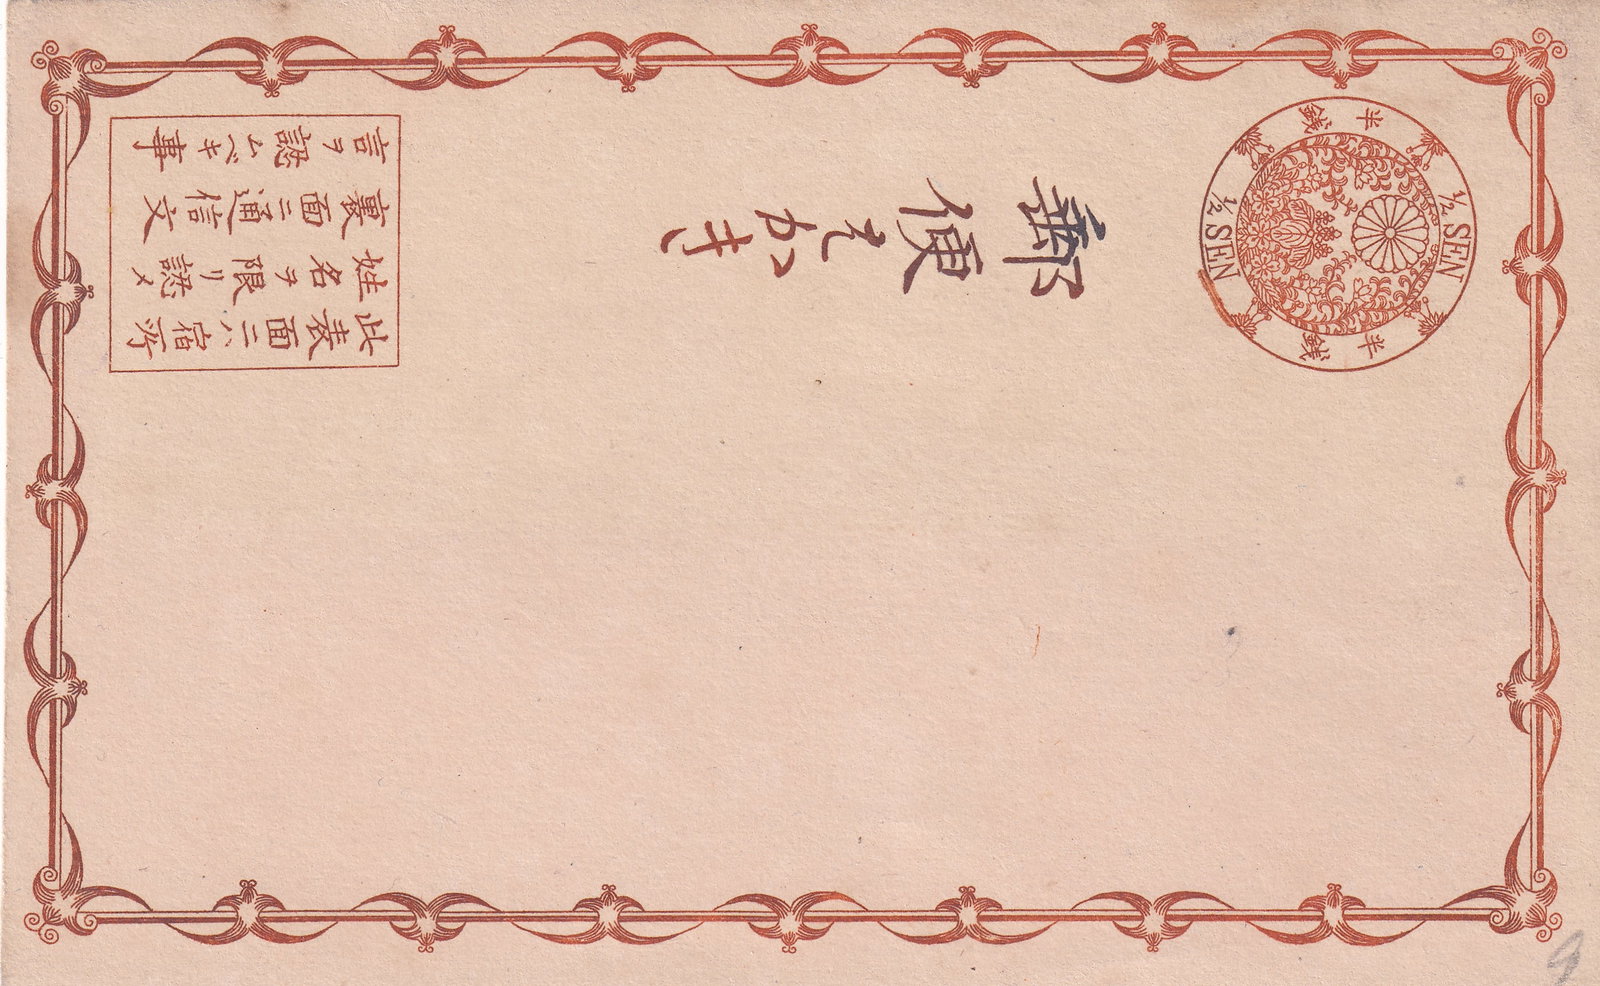 半銭
½ SEN
半銭
½ SEN
郵便はかき
此表面ニハ宿所
姓名ヲ限リ認メ
裏面ニ通信文
言ヲ認ムベキ事